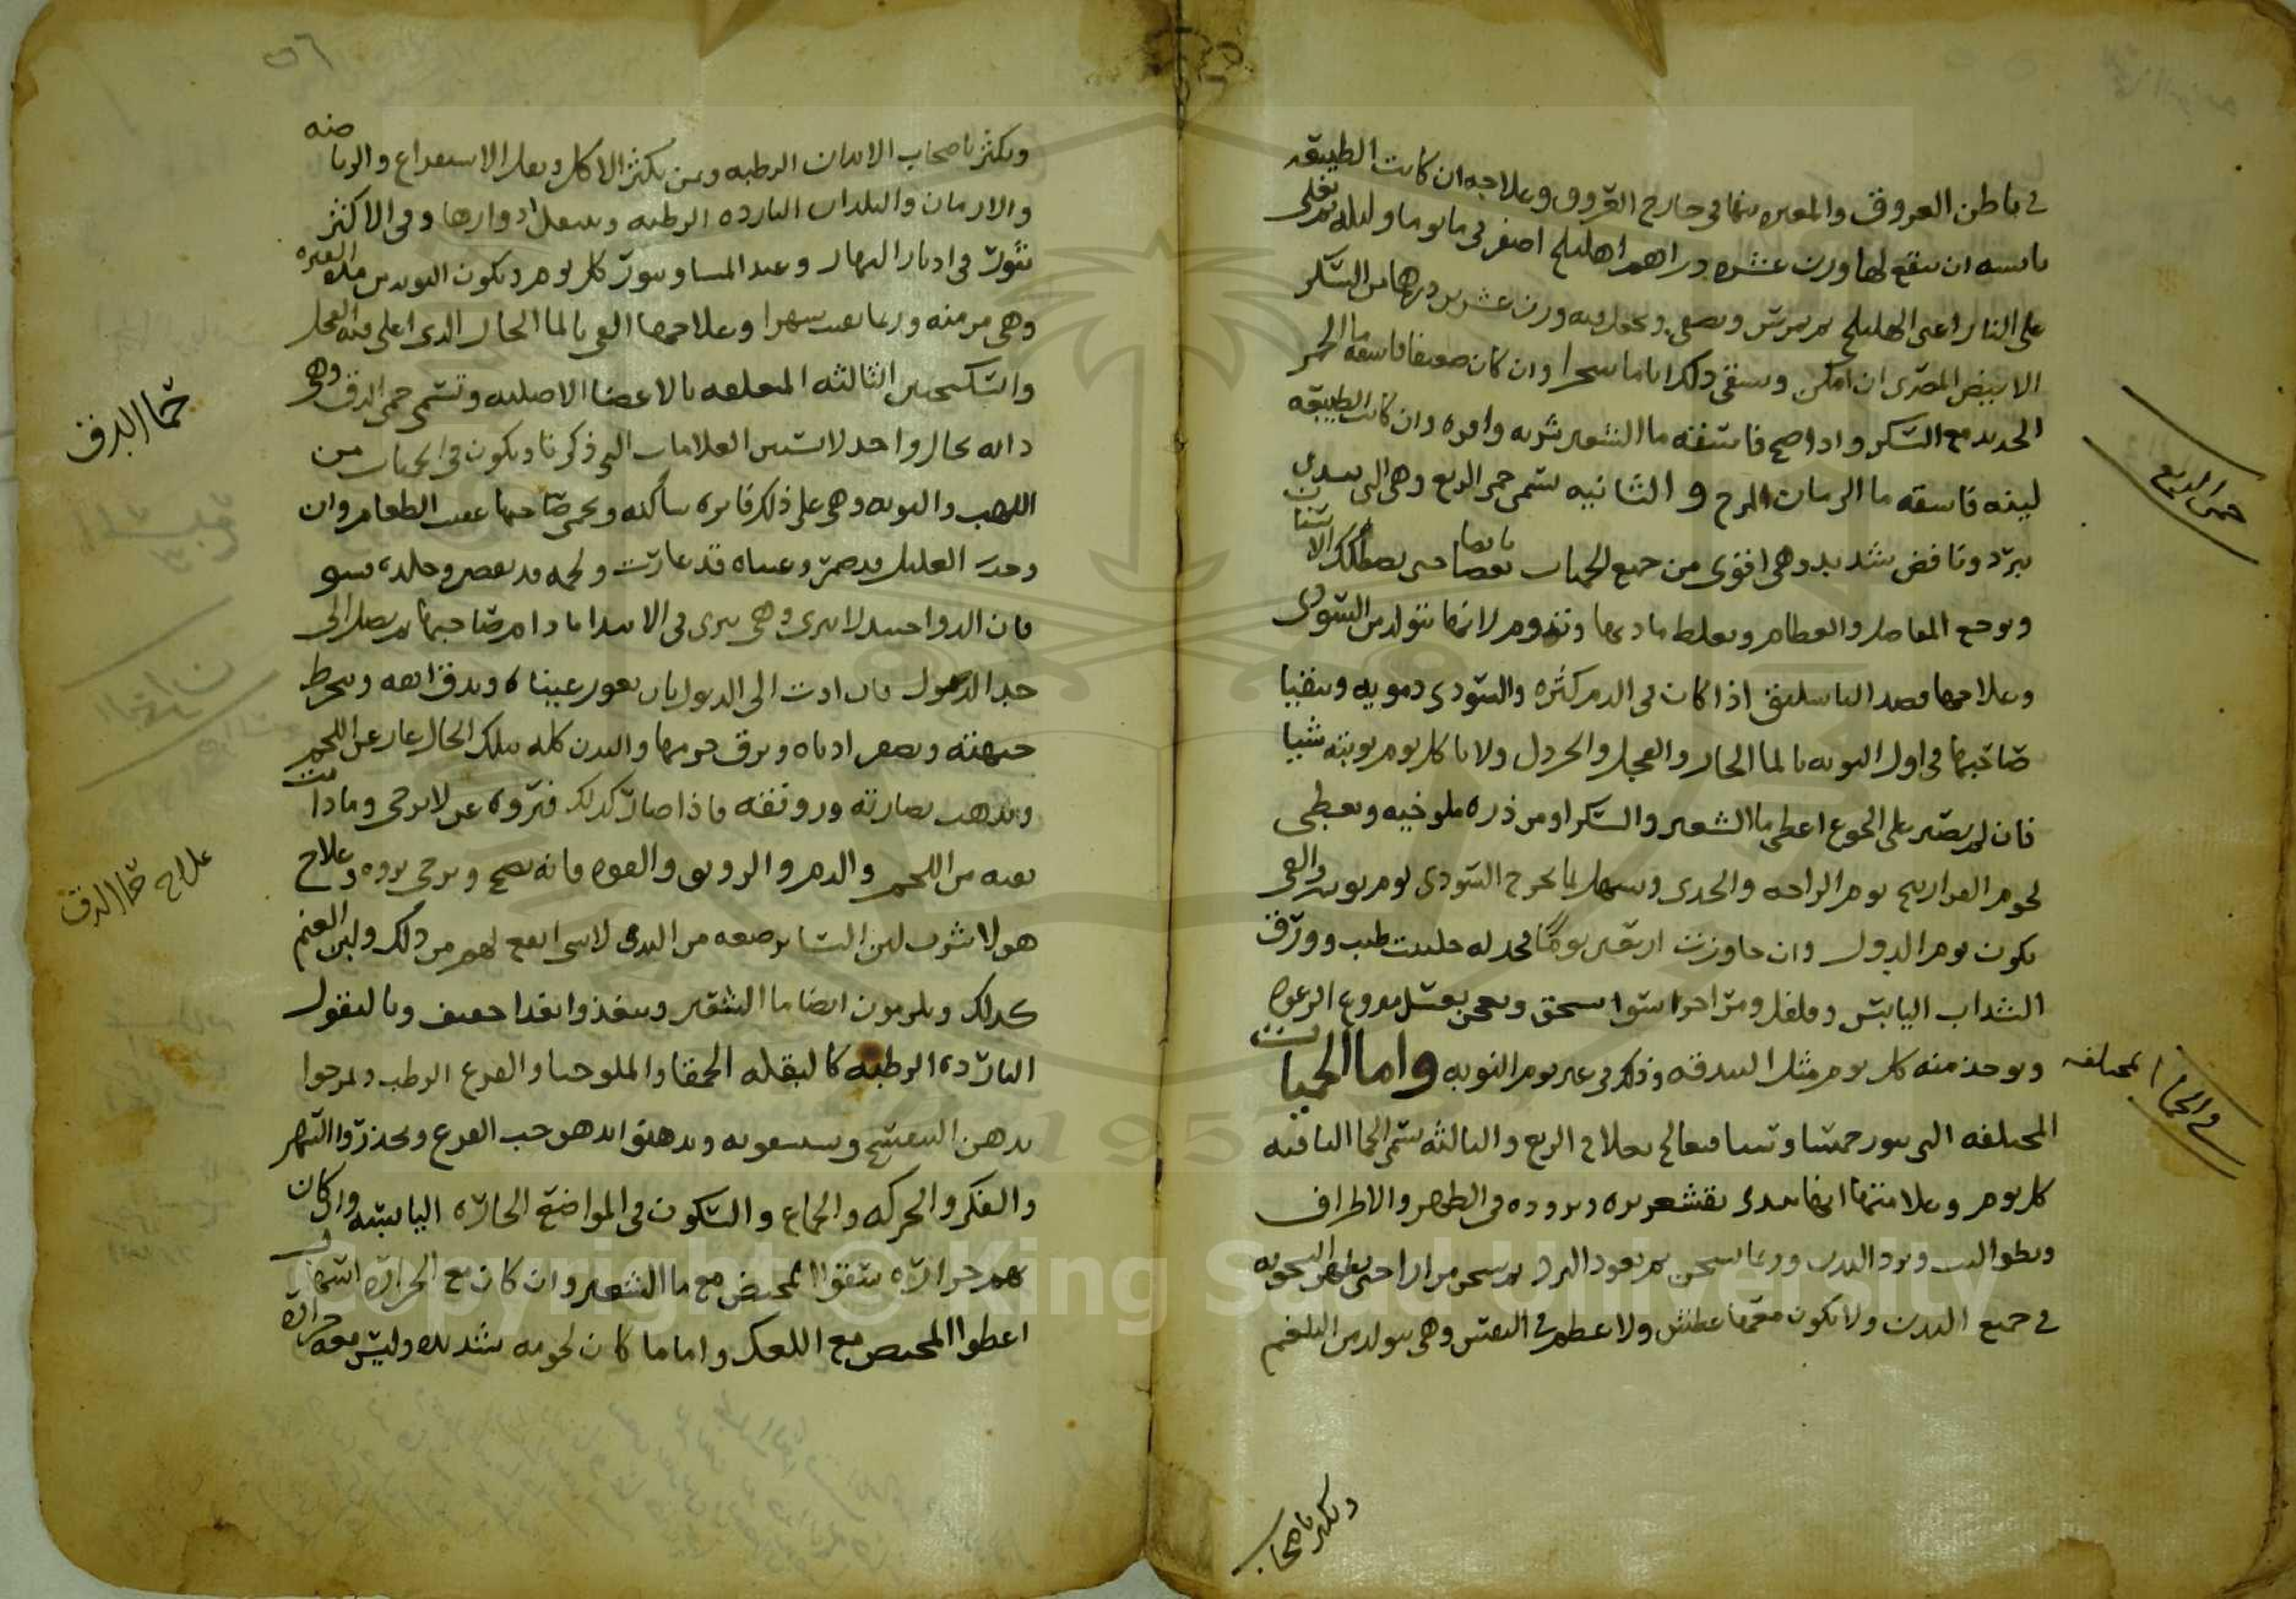 في باطن العروق والمفتره منها في خارج العروق وعلاجه ان كانت الطبيعه
يابسه ان ينقع لها وزن عشره دراهم اهليلج اصفر في ما يوما وليله ثم يغلى
على النار اعنى الهليلج ثم يمرس ويصفى ويجعل فيه وزن عشرين درهما من السكر
الابيض المصرى ان امكن ويسقى ذلك اياما سحرا وان كان ضعيفا فاسقه ما الخمر
الحديد مع السكر واذا صح فاسقه ما الشعير شربه وافره وان كانت الطبيعه
لينه فاسقه ما الرمان المز والثانيه تسمى حمى الربع وهى التى تبتدى
ببرد ونافض شديد وهى اقوى من جميع الحميات نافضا حتى تصطك الاسنان
وتوجع المفاصل والعظام وتغلط مادتها وتدوم لانها تتولد من السودى
وعلاجها فصد الباسليق اذا كان في الدم كثره والسودى دمويه ويتقيا
صاحبها في اول النوبه بالما الحار والفجل والخردل ولا ياكل يوم نوبته شيا
فان لم يصبر على الجوع اعطى ما الشعير والسكر او مزوره ملوخيه ويعطى
لحوم الفراريج يوم الراحه والجدى ويسهل بما يخرج السودى يوم والقى
يكون يوم الدول وان جاوزت اربعين يوما فخذ له حلتيت طيب وورق
السداب اليابس وفلفل ومر اجزا سوا يسحق ويعجن بعسل منزوع الرغوه
ويوخذ منه كل يوم مثل البندقه وذلك في غير يوم النوبه واما الحميات
المختلفه التى تنور خمسا وستا فتعالج بعلاج الربع والثالثه تسمى الحما النائبه
كل يوم وعلامتها انها تبتدى بقشعريره وبروده في الظهر والاطراف
ويطول لبث وبرد البدن وربما يسخن ثم يعود البرد ثم يسخن مرارا حتى تظهر السخونه
في جميع البدن ولا يكون معها عطش ولا عظم في النفس وهى تتولد من البلغم
حمى الربع
في الحما المختلفه
وتكثر باصحاب
٥٦
وتكثر باصحاب الابدان الرطبه ومن يكثر الاكل ويقل الاستفراغ والرياضه
والازمان والبلدان البارده الرطبه وتنتقل ادوارها وفى الاكثر
تنوب في ادبار النهار وعند المسا وتنوب كل يوم وتكون النوبه من الفتره
وهى مزمنه وربما بقيت شهرا وعلاجها القى بالما الحار الذى اغلى فيه الفجل
والسكنجبين الثالثه المتعلقه بالاعضا الاصليه وتسمى حمى الدق وهى
دايه بحال واحد لا تستبين العلامات التى ذكرنا وتكون في الحميات من
اللهب والنوبه وهى على ذلك فاتره ساكنه ويحمى صاحبها عقب الطعام وان
وجدت العليل قد ضمر وعيناه قد غارت ولحمه قد نقص وجلده
فان الدوا حينئذ لا يبرى وهى تبرى في الابتدا مادام صاحبها لم يصل الى
حد الذبول فان ادت الى الذبول بان تغور عيناه ويدق انفه وينخرط
جبهته ويصفر اذناه وترق جرمها والبدن كله بتلك الحال عار عن اللحم
وتذهب نضارته ورونقه فاذا صار كذلك فبروه عسر لا يرجى ومادامت
بقيه من اللحم والدم والرونق والقوه فانه يصح ويرجى بروه وعلاج
هولا شرب لبن النسا يرضعه من الثدى لا شى انفع لهم من ذلك ولبن الغنم
كذلك ويلزمون ايضا ما الشعير ويتغذوا بغدا خفيف وبالبقول
البارده الرطبه كالبقله الحمقا والملوخيا والقرع الرطب ويمرخوا
بدهن البنفسج ويستنشقونه ويدهنوا بدهن حب القرع ويحذروا السهر
والفكر والحركه والجماع والسكون في المواضع الحاره اليابسه وان كان
بهم حراره سقوا المخيض مع ما الشعير وان كان مع الحراره اسهال
اعطوا المخيض مع الكعك واما ما كان لحومه شديده وليس معه حراره
حما الدق
علاج حما الدق
Copyright © King Saud University
1957